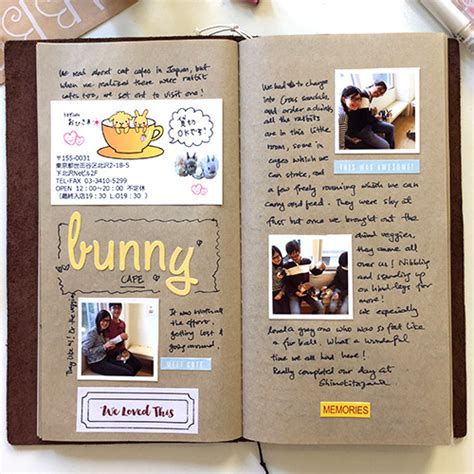 We read about cat cafes in Japan, but
when we realized there were rabbit
cafes two, we set out to visit one!
おひさま
貸切
OKです!
〒155-0031
東京都世田谷区北沢2-18-5
下北沢Nビル2F
TEL・FAX 03-3410-5299
OPEN 12:00~20:00 不定休
(最終入店19:30 L.O19:30)
bunny
CAFE
It was worth all
the effort
getting lost &
going around.
I've Loved This
We had to change
into Crocs sandals
and order a drink,
all the rabbits
are in this little
room, some in
cages which we
can stroke, and
a few freely running which we can
carry and feed. They were shy at
first but once we brought out the
dried veggies, they came all
over us! Nibbling
and standing up
on hind-legs for
more!
We especially
loved a grey one who was so fat like
a fur ball. What a wonderful
time we all had here!
Really completed our day at
Shimokitazawa
THIS WAS AWESOME!
MEMORIES